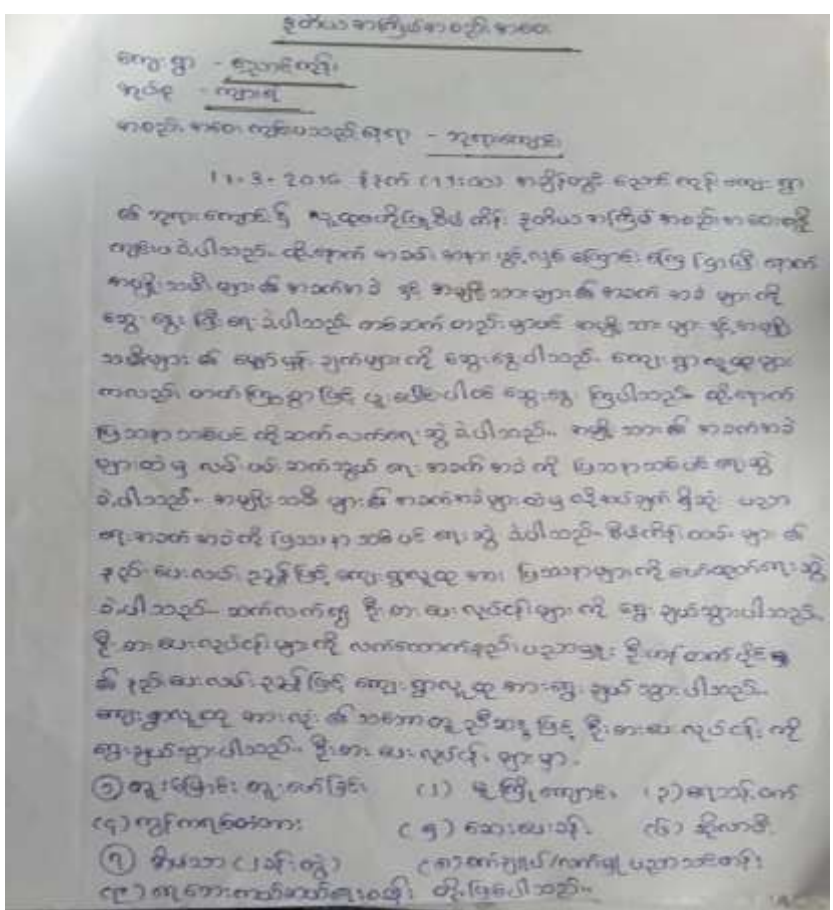 ဒုတိယအကြိမ်အစည်းအဝေး
ကျေးရွာ -
အုပ်စု -
အစည်းအဝေးကျင်းပသည့်နေရာ - ဘုရားကျောင်း
11-3-2016 ကျေးရွာ
၏ ဘုရားကျောင်း၌ ဒုတိယအကြိမ် အစည်းအဝေးကို
ကျင်းပခဲ့ပါသည်။ ထို့နောက် အခမ်းအနား ဖွင့်လှစ်ကြောင်း ကြေငြာပြီးနောက်
အမျိုးသမီးများ၏ အခက်အခဲ နှင့် အမျိုးသားများ၏ အခက်အခဲများကို
ဆွေးနွေးပြီးရေးခဲ့ပါသည်။ တစ်ဆက်တည်းမှာပင် အမျိုးသားများ နှင့် အမျိုး
သမီးများ၏ မျှော်မှန်းချက်များကို ဆွေးနွေးပါသည်။ ကျေးရွာလူထုများ
ကလည်း တက်ကြွစွာဖြင့် ပူးပေါင်းပါဝင် ဆွေးနွေးကြပါသည်။ ထို့နောက်
ပြဿနာသစ်ပင်ကိုဆက်လက်ရေးဆွဲခဲ့ပါသည်။ အမျိုးသား၏ အခက်အခဲ
များထဲမှ လမ်းပမ်းဆက်သွယ်ရေးအခက်အခဲကို ပြဿနာသစ်ပင်ရေးဆွဲ
ခဲ့ပါသည်။ အမျိုးသမီးများ၏အခက်အခဲများထဲမှ ပညာ
ရေးအခက်အခဲကို ပြဿနာသစ်ပင် ရေးဆွဲခဲ့ပါသည်။ ၏
နည်းပေးလမ်းညွှန်ဖြင့် ကျေးရွာလူထုအား ပြဿနာများကို ဖော်ထုတ်ရေးဆွဲ
ခဲ့ပါသည်။ ဆက်လက်၍ ဦးစားပေးလုပ်ငန်းများကို ရွေးချယ်သွားပါသည်။
ဦးစားပေးလုပ်ငန်းများကို လက်ထောက်နည်းပညာမှူး
၏ နည်းပေးလမ်းညွှန်ဖြင့် ကျေးရွာလူထုအားရွေးချယ်သွားပါသည်။
ကျေးရွာလူထုအားလုံး၏သဘောတူညီဆန္ဒဖြင့် ဦးစားပေးလုပ်ငန်းကို
ရွေးချယ်သွားပါသည်။ ဦးစားပေးလုပ်ငန်းများမှာ
(၁) (၂) မူကြိုကျောင်း (၃)
(၄) ကွန်ကရစ်တံတား (၅) ဆေးပေးခန်း (၆) ဆိုလာမီး
(၇) (၈) စက်ချုပ်/လက်မှုပညာသင်တန်း
(၉) တို့ဖြစ်ပါသည်။